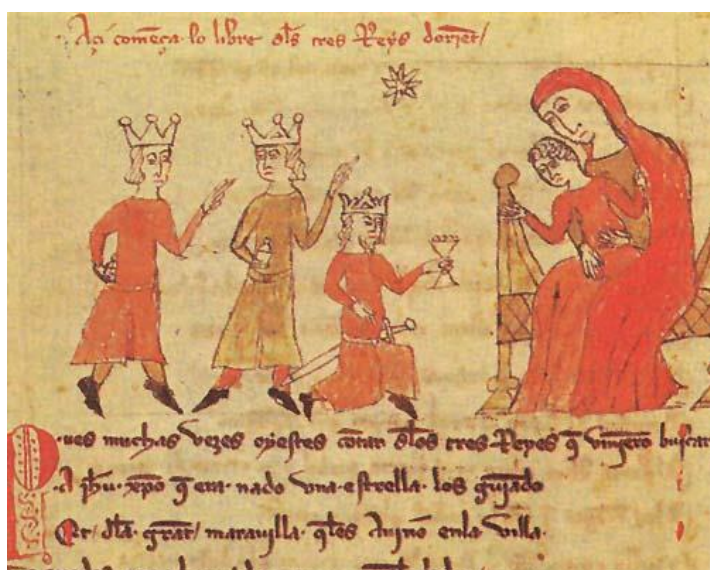 Açi comença lo libre dls tres Reys dorient
Pues muchas vezes oyestes contar dlos tres Reyes q vinjero buscar
A ihu xpo q era nado vna estrella los gujado
Et dla grat marauilla qles Avino enla villa